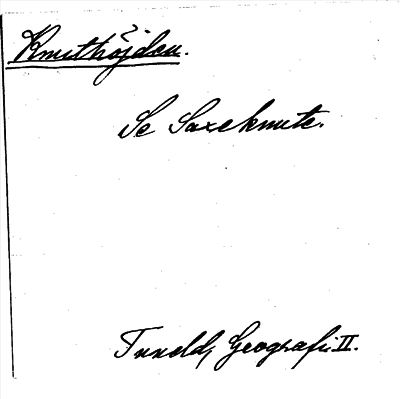 Knuthöjden.
Se Saxeknute.
Tunelds Geografi II.